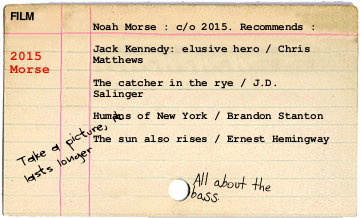 FILM
2015
Morse
Noah Morse : c/o 2015. Recommends :
Jack Kennedy: elusive hero / Chris
Matthews
The catcher in the rye / J.D.
Salinger
Humans of New York / Brandon Stanton
The sun also rises / Ernest Hemingway
Take a picture, it
lasts longer
All about the
bass.